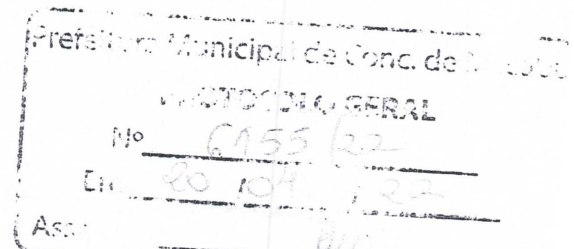 Prefeitura Municipal de Conc. de Macabu
PROTOCOLO GERAL
Nº 6155/22
Em 20 / 04 / 22
Ass.